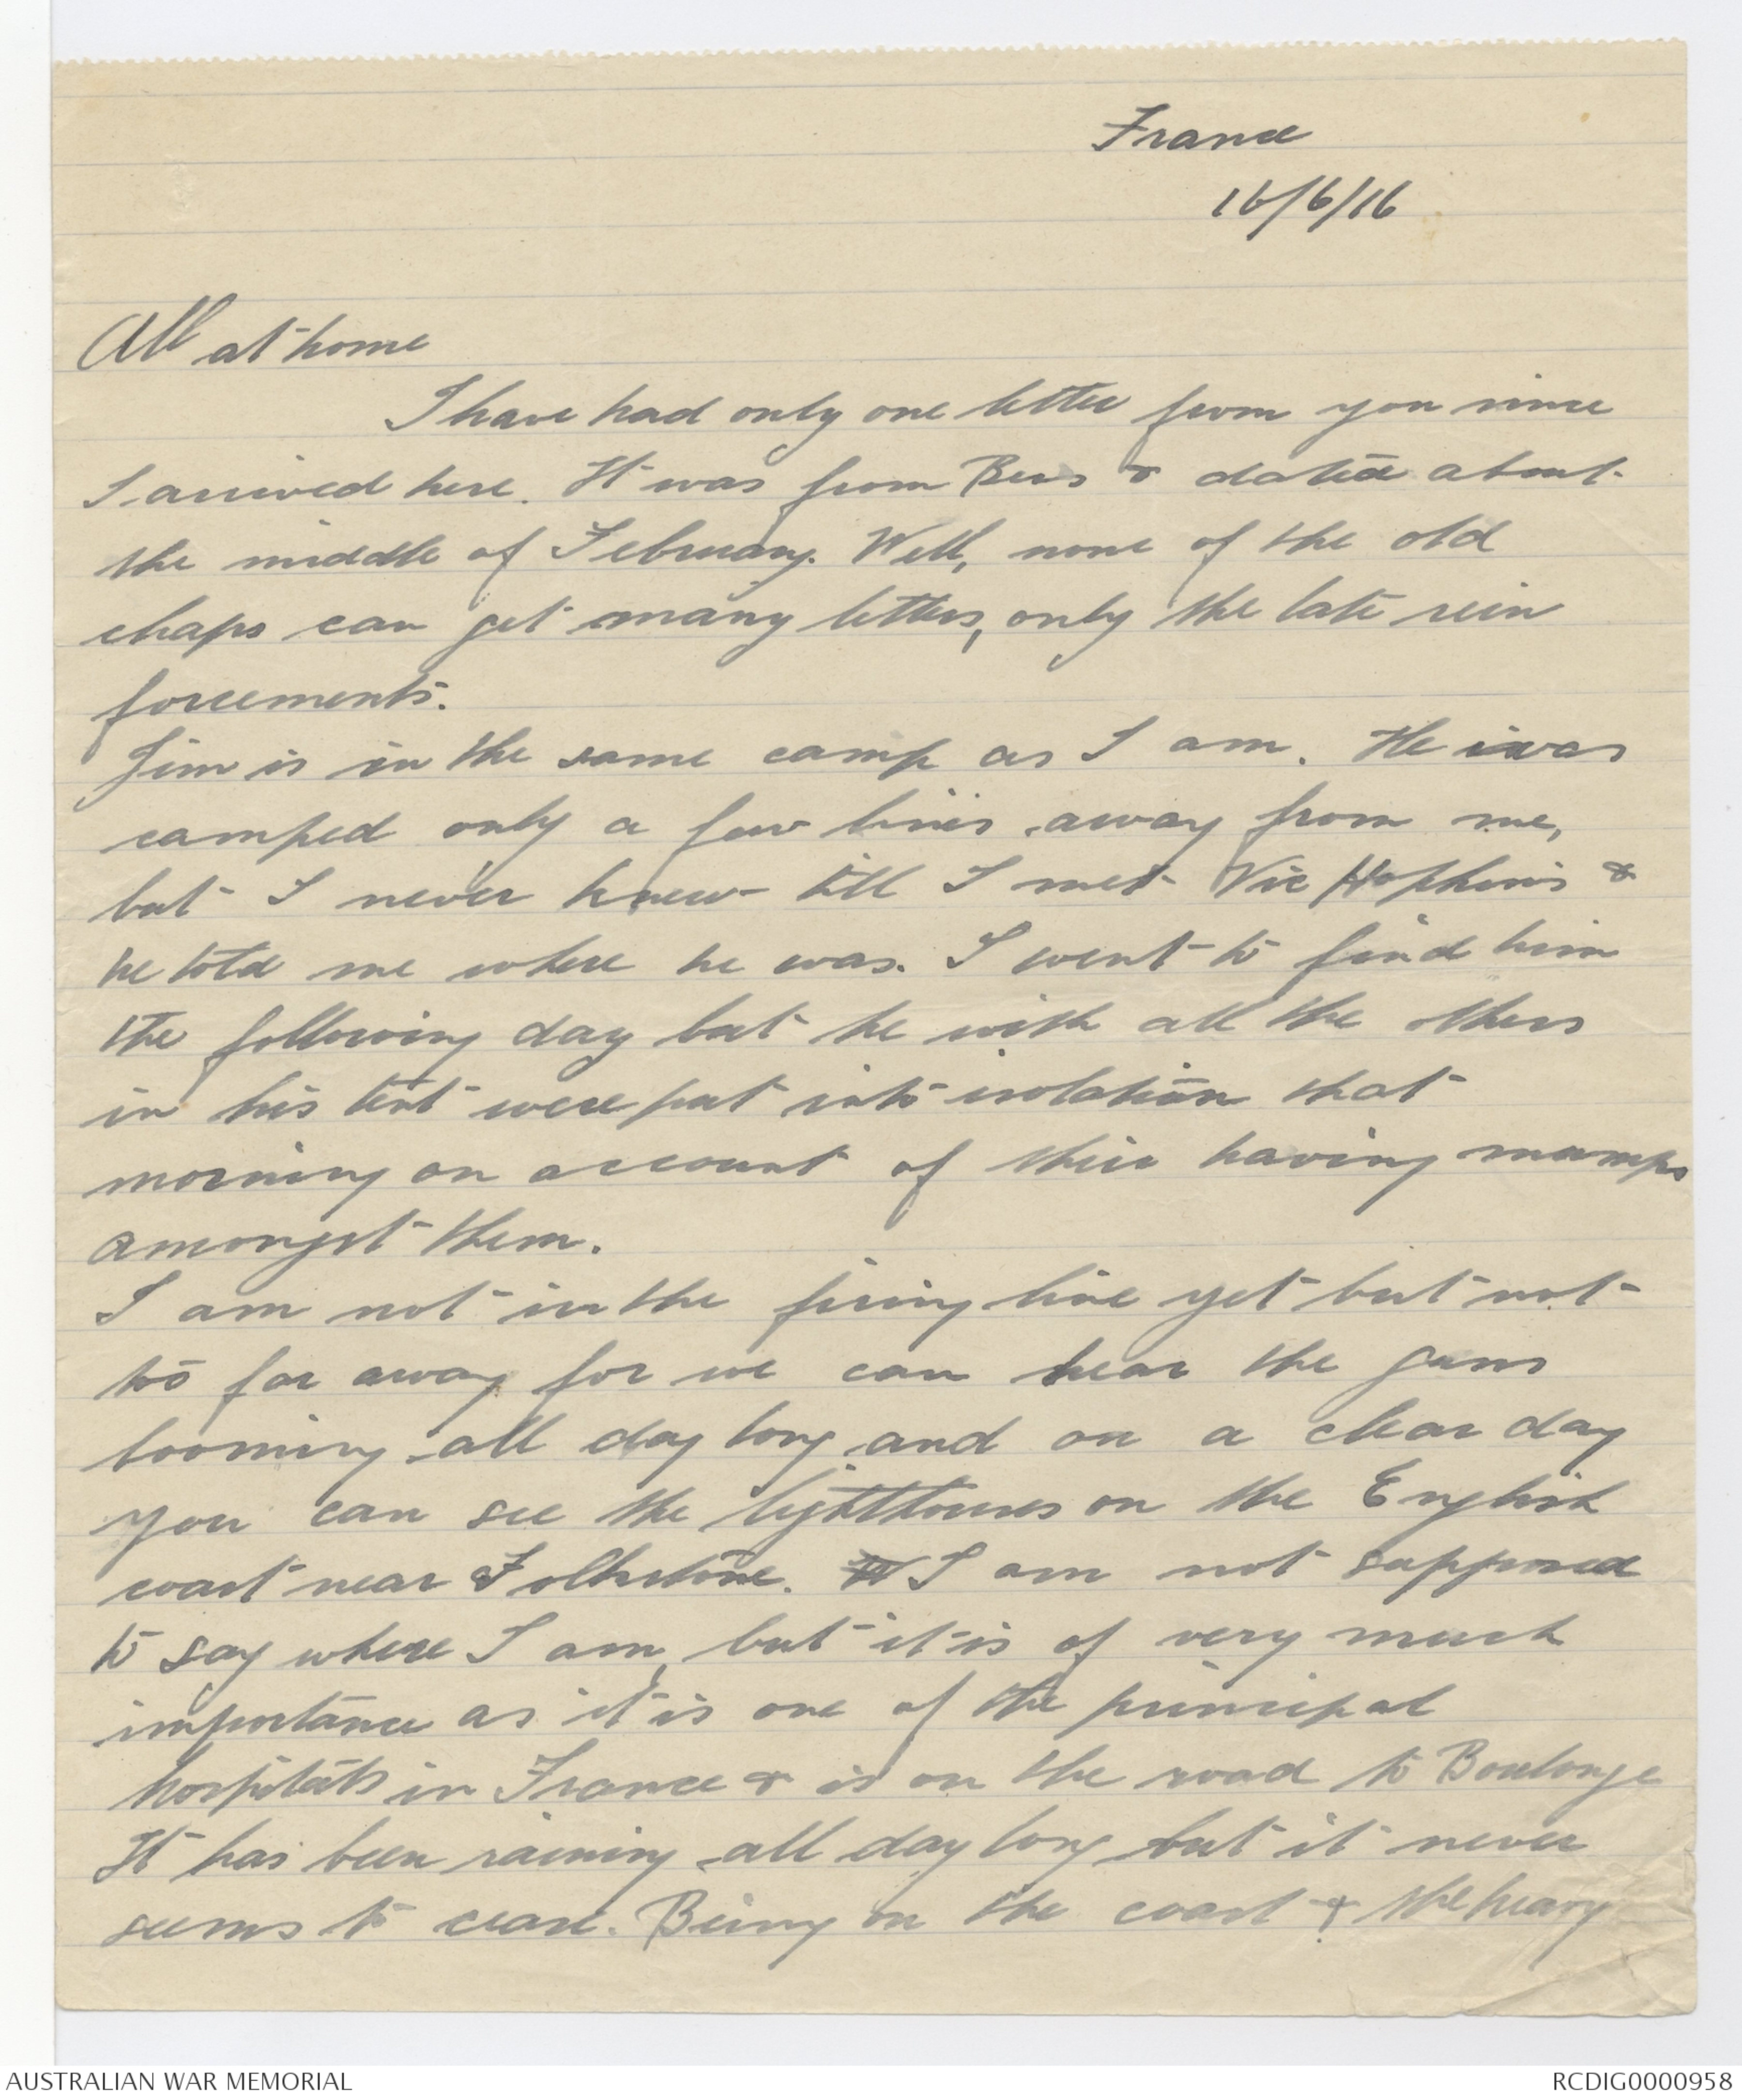 France
16/6/16
All at home
I have had only one letter from you since
I arrived here. It was from & dated about
the middle of February. Well, none of the old
chaps can get many letters, only the late rein
forcements.
Jim is in the same camp as I am. He was
camped only a few lines away from me,
but I never knew till I met Vic Hopkins &
he told me where he was. I went to find him
the following day but he with all the others
in his tent were put into isolation that
morning on account of their having mumps
amongst them.
I am not in the firing line yet but not
too far away for we can hear the guns
booming all day long and on a clear day
you can see the lighthouses on the English
coast near Folkstone. I am not supposed
to say where I am, but it is of very much
importance as it is one of the principal
hospitals in France & is on the road to Boulonge
It has been raining all day long but it never
seems to cease. Being on the coast & the heavy
AUSTRALIAN WAR MEMORIAL
RCDIG0000958